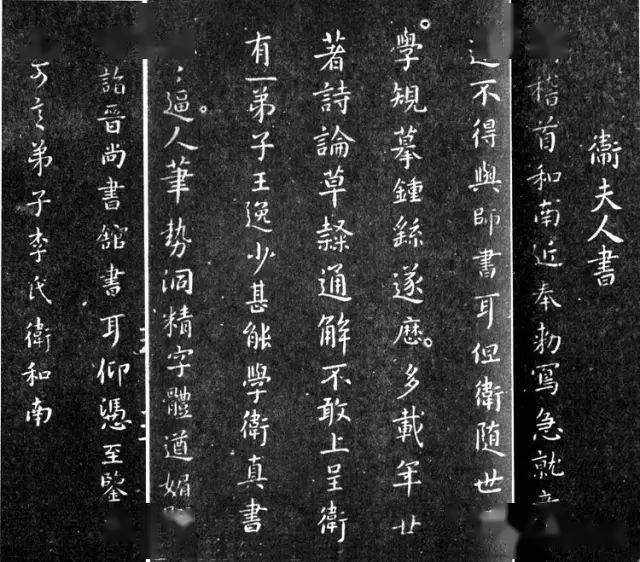 衞夫人書
稽首和南近奉勅寫急就
不得與師書耳但衛隨世
學規摹鍾繇遂歷多載年廿
著詩論草隸通解不敢上呈衛
有一弟子王逸少甚能學衛真書
逼人筆勢洞精字體遒媚
詣晉尚書館書耳仰憑至鑒
弟子李氏衛和南